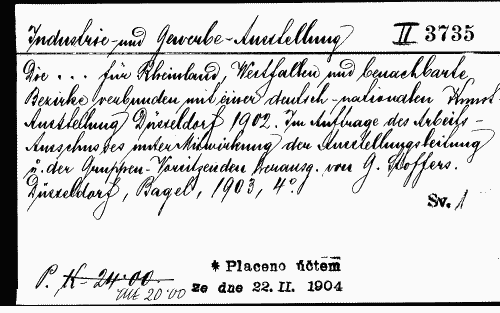 Industrie- und Gewerbe-Ausstellung II 3735
Die ... für Rheinland, Westfalen und benachbarte
Bezirke verbunden mit einer deutsch-nationalen Kunst-
Ausstellung Düsseldorf 1902. Im Auftrage des Arbeits-
Ausschusses unter Mitwirkung der Ausstellungsleitung
u. der Gruppen-Vorsitzenden herausg. von G. Stoffers.
Düsseldorf, Bagel, 1903, 4°.
Sv. 1
* Placeno účtem
P. K 24·00
ze dne 22. II. 1904
20·00